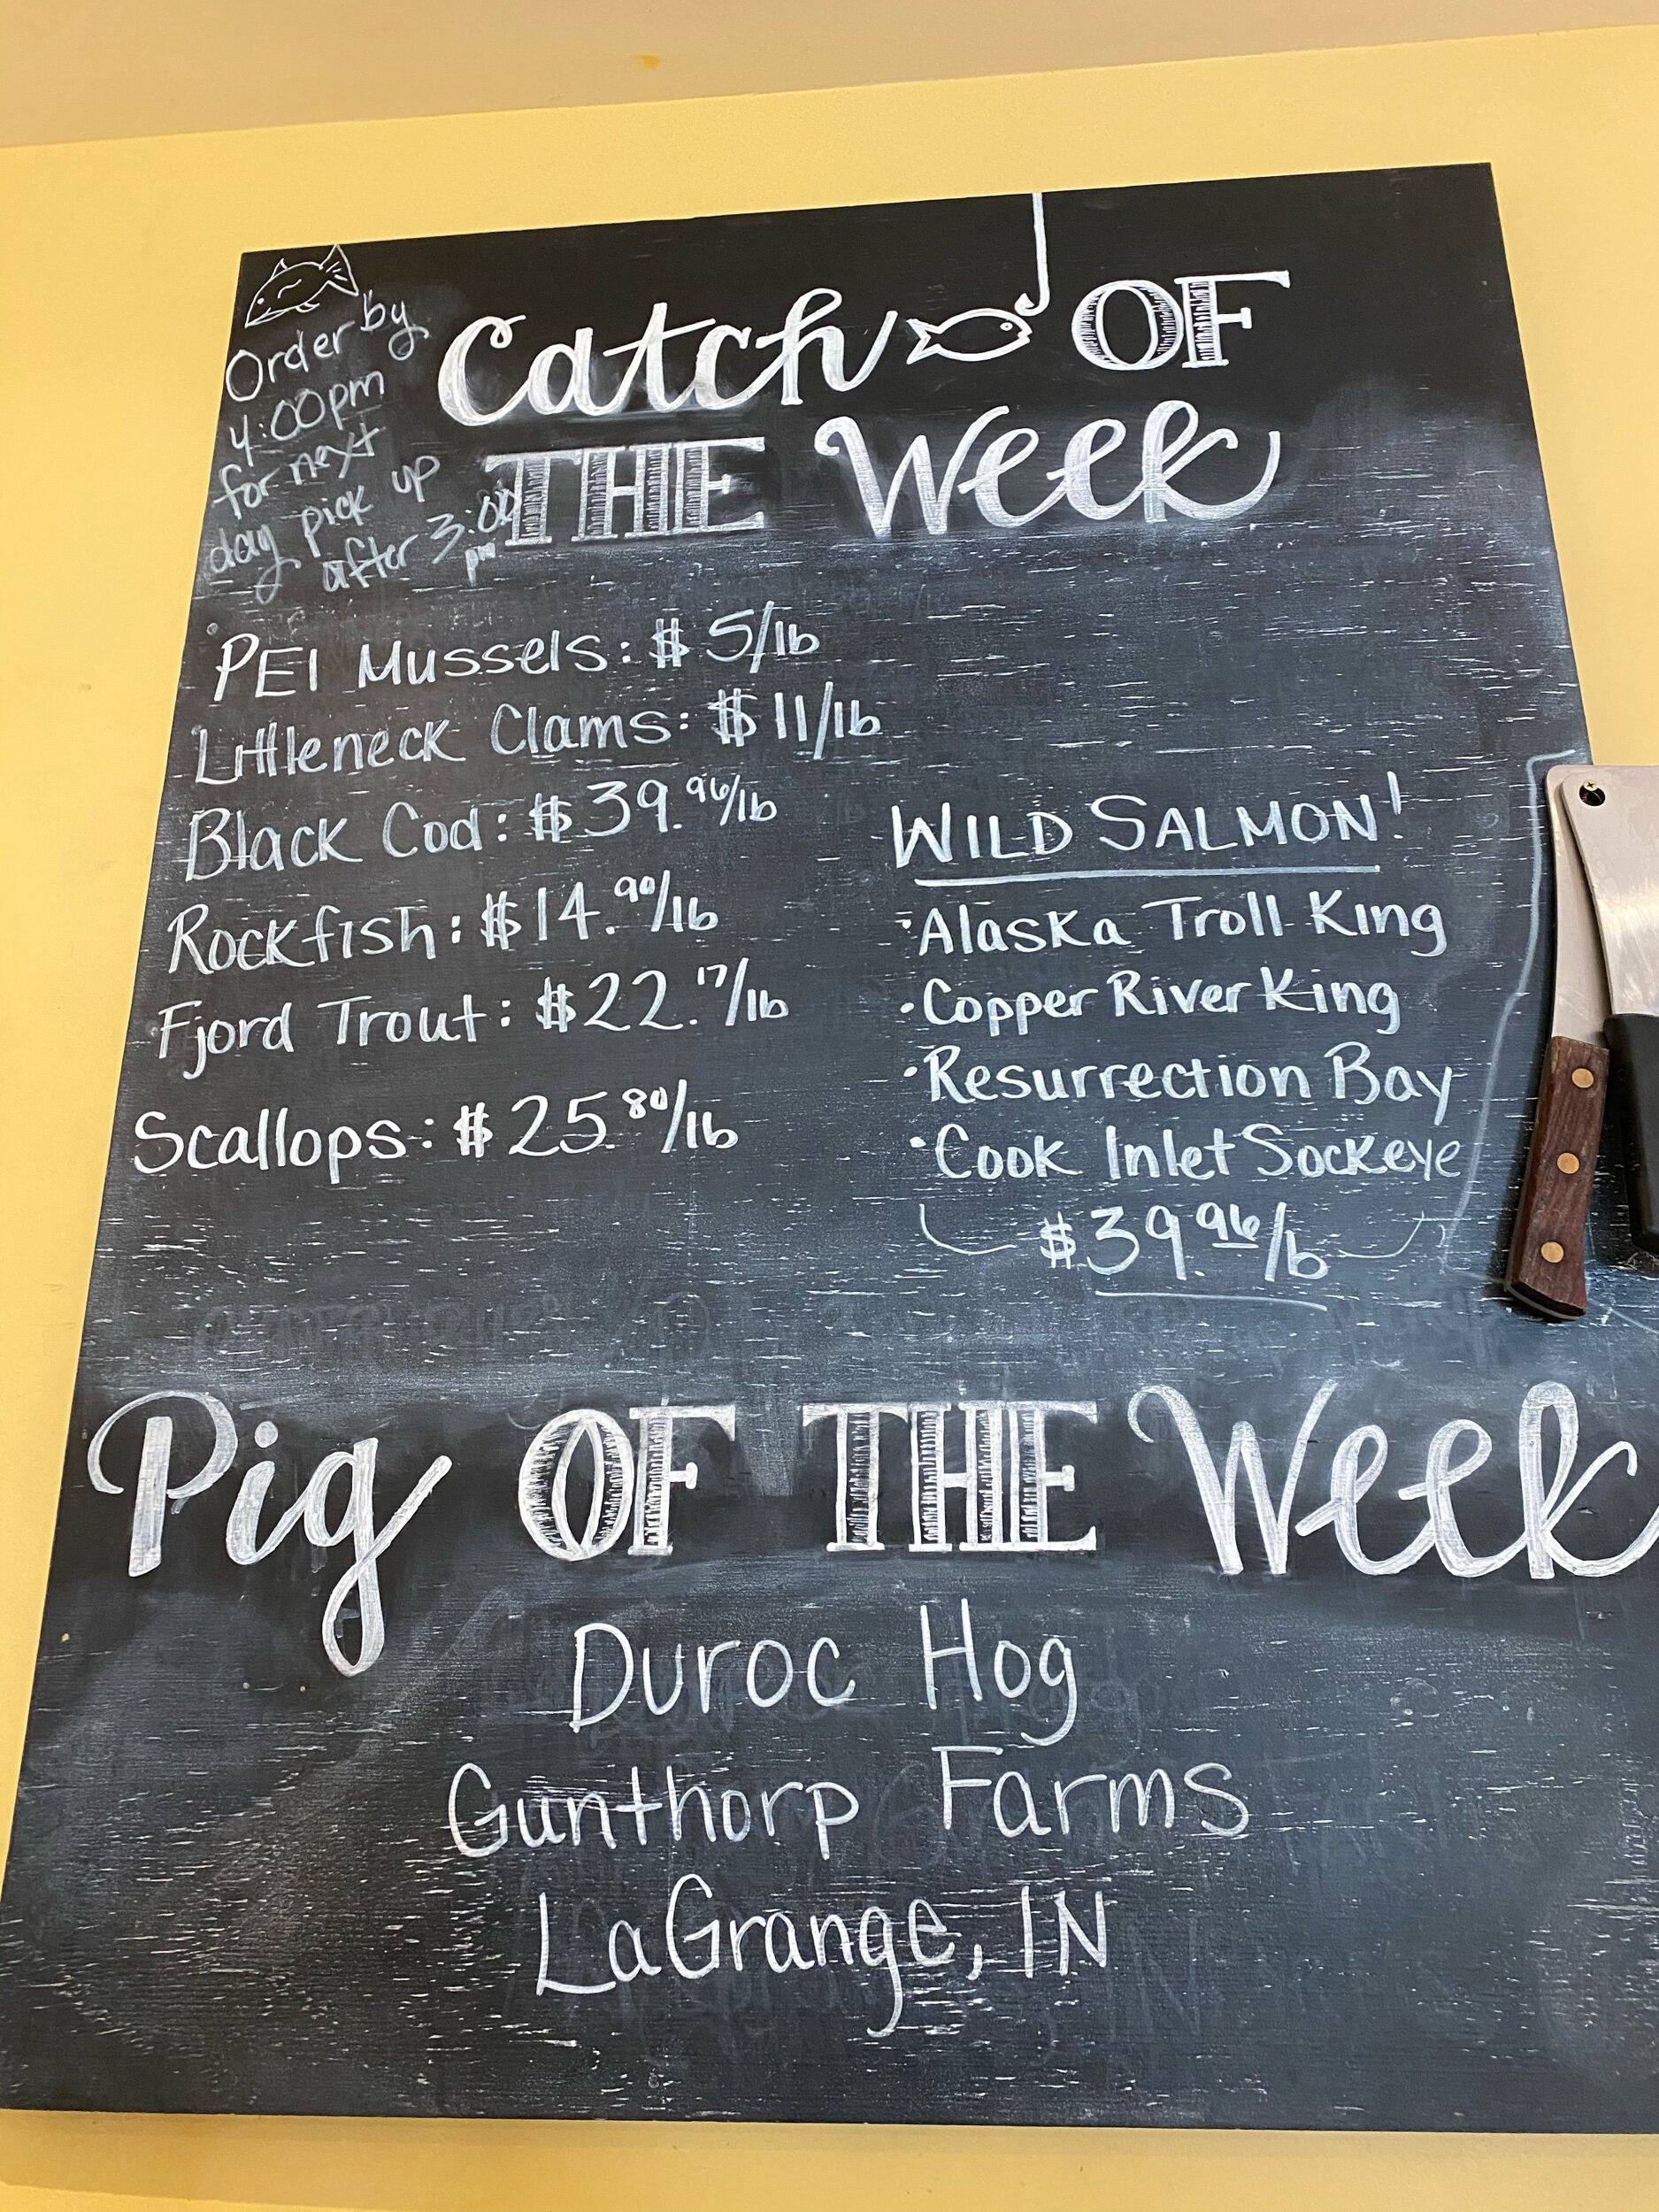 Order by
4:00pm
for next
day pick up
after 3:00
pm
Catch OF
THE Week
PEI Mussels: $5/lb
Littleneck Clams: $11/lb
Black Cod: $39.96/lb
Rockfish: $14.90/lb
Fjord Trout: $22.17/lb
Scallops: $25.80/lb
WILD SALMON!
·Alaska Troll King
·Copper River King
·Resurrection Bay
·Cook Inlet Sockeye
$39.96/lb
Pig OF THE Week
Duroc Hog
Gunthorp Farms
LaGrange, IN